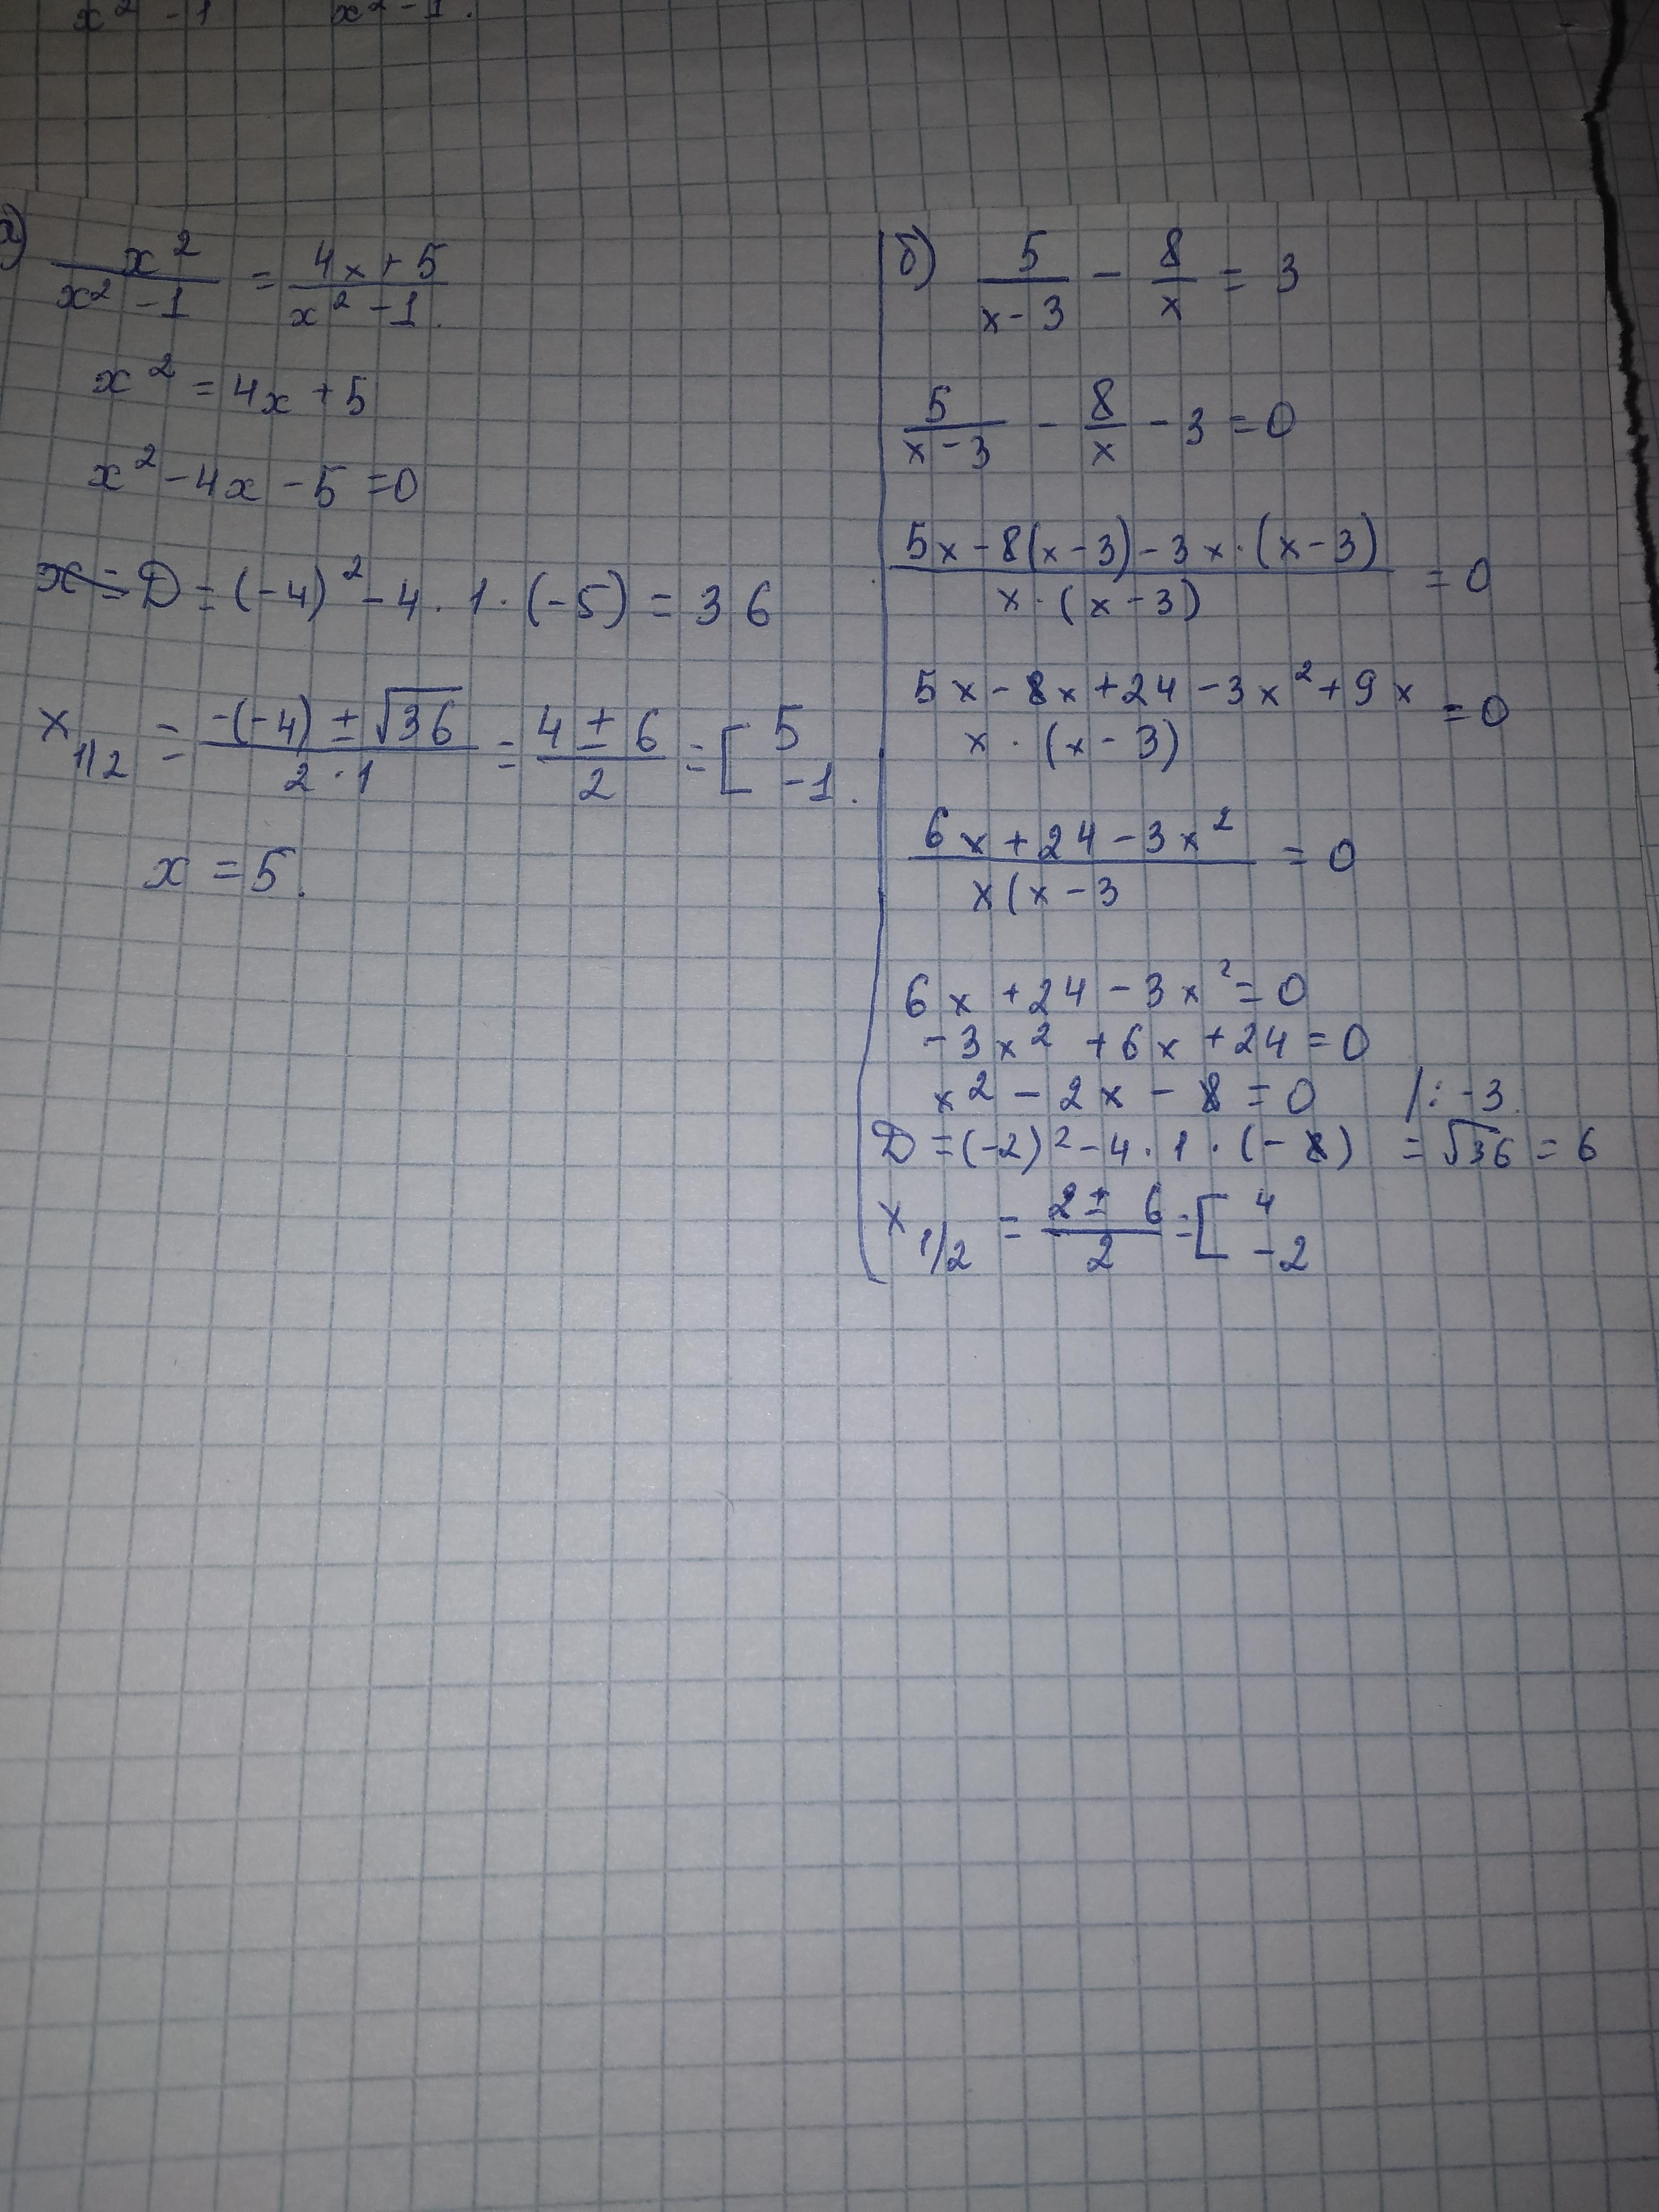 x² - 1   x² - 1.
а) x² / (x² - 1) = (4x + 5) / (x² - 1).
x² = 4x + 5
x² - 4x - 5 = 0
x = D = (-4)² - 4 · 1 · (-5) = 36
x 1/2 = (-(-4) ± √36) / (2 · 1) = (4 ± 6) / 2 = [ 5 -1.
x = 5.
б) 5 / (x - 3) - 8 / x = 3
5 / (x - 3) - 8 / x - 3 = 0
(5x - 8(x - 3) - 3x · (x - 3)) / (x · (x - 3)) = 0
5x - 8x + 24 - 3x² + 9x = 0
x · (x - 3)
(6x + 24 - 3x²) / (x(x - 3) = 0
6x + 24 - 3x² = 0
-3x² + 6x + 24 = 0
x² - 2x - 8 = 0 /: -3.
D = (-2)² - 4 · 1 · (-8) = √36 = 6
x 1/2 = (2 ± 6) / 2 = [ 4 -2